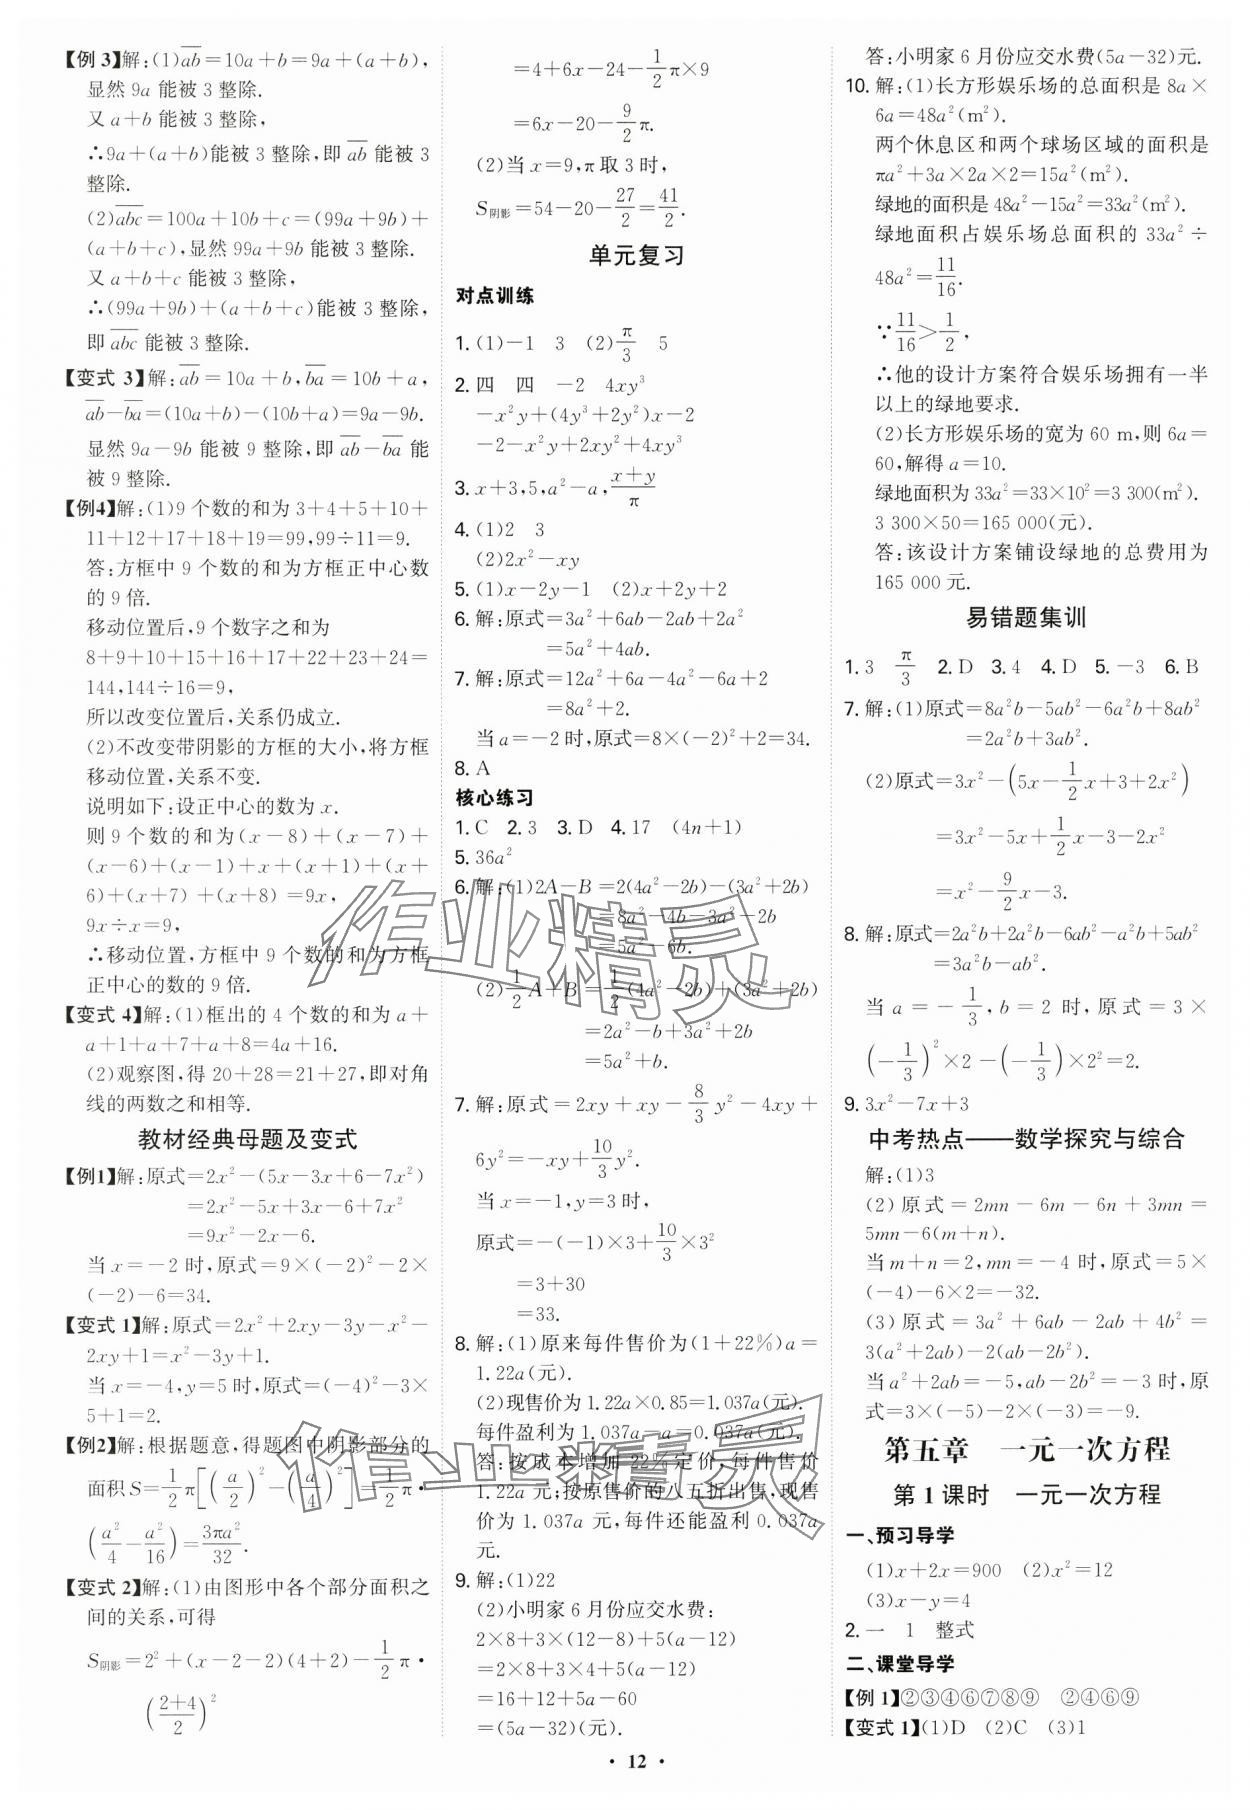 【例 3】解:(1)ab=10a+b=9a+(a+b),
显然 9a 能被 3 整除.
又 a+b 能被 3 整除,
∴9a+(a+b)能被 3 整除,即 ab 能被 3
整除.
(2)abc=100a+10b+c=(99a+9b)+
(a+b+c),显然 99a+9b 能被 3 整除.
又 a+b+c 能被 3 整除,
∴(99a+9b)+(a+b+c)能被 3 整除,
即 abc 能被 3 整除.
【变式 3】解:ab=10a+b,ba=10b+a,
ab-ba=(10a+b)-(10b+a)=9a-9b.
显然 9a-9b 能被 9 整除,即 ab-ba 能
被 9 整除.
【例4】解:(1)9 个数的和为 3+4+5+10+
11+12+17+18+19=99,99÷11=9.
答:方框中 9 个数的和为方框正中心数
的 9 倍.
移动位置后,9 个数字之和为
8+9+10+15+16+17+22+23+24=
144,144÷16=9,
所以改变位置后,关系仍成立.
(2)不改变带阴影的方框的大小,将方框
移动位置,关系不变.
说明如下:设正中心的数为 x.
则 9 个数的和为(x-8)+(x-7)+
(x-6)+(x-1)+x+(x+1)+(x+
6)+(x+7)+(x+8)=9x,
9x÷x=9,
∴移动位置,方框中 9 个数的和为方框
正中心的数的 9 倍.
【变式 4】解:(1)框出的 4 个数的和为 a+
a+1+a+7+a+8=4a+16.
(2)观察图,得 20+28=21+27,即对角
线的两数之和相等.
教材经典母题及变式
【例1】解:原式=2x²-(5x-3x+6-7x²)
=2x²-5x+3x-6+7x²
=9x²-2x-6.
当 x=-2 时,原式=9×(-2)²-2×
(-2)-6=34.
【变式 1】解:原式=2x²+2xy-3y-x²-
2xy+1=x²-3y+1.
当 x=-4,y=5 时,原式=(-4)²-3×
5+1=2.
【例2】解:根据题意,得题图中阴影部分的
面积 S=1/2π[(a/2)²-(a/4)²]=1/2π·
(a²/4-a²/16)=3πa²/32.
【变式 2】解:(1)由图形中各个部分面积之
间的关系,可得
S阴影=2²+(x-2-2)(4+2)-1/2π·
((2+4)/2)²
=4+6x-24-1/2π×9
=6x-20-9/2π.
(2)当 x=9,π 取 3 时,
S阴影=54-20-27/2=41/2.
单元复习
对点训练
1. (1)-1 3 (2)π/3 5
2. 四 四 -2 4xy³
-x²y+(4y³+2y²)x-2
-2-x²y+2xy²+4xy³
3. x+3,5,a²-a,(x+y)/π
4. (1)2 3
(2)2x²-xy
5. (1)x-2y-1 (2)x+2y+2
6. 解:原式=3a²+6ab-2ab+2a²
=5a²+4ab.
7. 解:原式=12a²+6a-4a²-6a+2
=8a²+2.
当 a=-2 时,原式=8×(-2)²+2=34.
8. A
核心练习
1. C 2. 3 3. D 4. 17 (4n+1)
5. 36a²
6. 解:(1)2A-B=2(4a²-2b)-(3a²+2b)
=8a²-4b-3a²-2b
=5a²-6b.
(2)1/2A+B=1/2(4a²-2b)+(3a²+2b)
=2a²-b+3a²+2b
=5a²+b.
7. 解:原式=2xy+xy-8/3y²-4xy+
6y²=-xy+10/3y².
当 x=-1,y=3 时,
原式=-(-1)×3+10/3×3²
=3+30
=33.
8. 解:(1)原来每件售价为(1+22%)a=
1.22a(元).
(2)现售价为 1.22a×0.85=1.037a(元).
每件盈利为 1.037a-a=0.037a(元).
答:按成本增加 22%定价,每件售价
1.22a 元;按原售价的八五折出售,现售
价为 1.037a 元,每件还能盈利 0.037a
元.
9. 解:(1)22
(2)小明家 6 月份应交水费:
2×8+3×(12-8)+5(a-12)
=2×8+3×4+5(a-12)
=16+12+5a-60
=(5a-32)(元).
答:小明家 6 月份应交水费(5a-32)元.
10. 解:(1)长方形娱乐场的总面积是 8a×
6a=48a²(m²).
两个休息区和两个球场区域的面积是
πa²+3a×2a×2=15a²(m²).
绿地的面积是 48a²-15a²=33a²(m²).
绿地面积占娱乐场总面积的 33a²÷
48a²=11/16.
∵11/16>1/2,
∴他的设计方案符合娱乐场拥有一半
以上的绿地要求.
(2)长方形娱乐场的宽为 60 m,则 6a=
60,解得 a=10.
绿地面积为 33a²=33×10²=3 300(m²).
3 300×50=165 000(元).
答:该设计方案铺设绿地的总费用为
165 000 元.
易错题集训
1. 3 π/3 2. D 3. 4 4. D 5. -3 6. B
7. 解:(1)原式=8a²b-5ab²-6a²b+8ab²
=2a²b+3ab².
(2)原式=3x²-(5x-1/2x+3+2x²)
=3x²-5x+1/2x-3-2x²
=x²-9/2x-3.
8. 解:原式=2a²b+2a²b-6ab²-a²b+5ab²
=3a²b-ab².
当 a=-1/3,b=2 时,原式=3×
(-1/3)²×2-(-1/3)×2²=2.
9. 3x²-7x+3
中考热点——数学探究与综合
解:(1)3
(2)原式=2mn-6m-6n+3mn=
5mn-6(m+n).
当 m+n=2,mn=-4 时,原式=5×
(-4)-6×2=-32.
(3)原式=3a²+6ab-2ab+4b²=
3(a²+2ab)-2(ab-2b²).
当 a²+2ab=-5,ab-2b²=-3 时,原
式=3×(-5)-2×(-3)=-9.
第五章 一元一次方程
第 1 课时 一元一次方程
一、预习导学
(1)x+2x=900 (2)x²=12
(3)x-y=4
2. 一 1 整式
二、课堂导学
【例 1】②③④⑥⑦⑧⑨ ②④⑥⑨
【变式 1】(1)D (2)C (3)1
· 12 ·
作业精灵
作业精灵